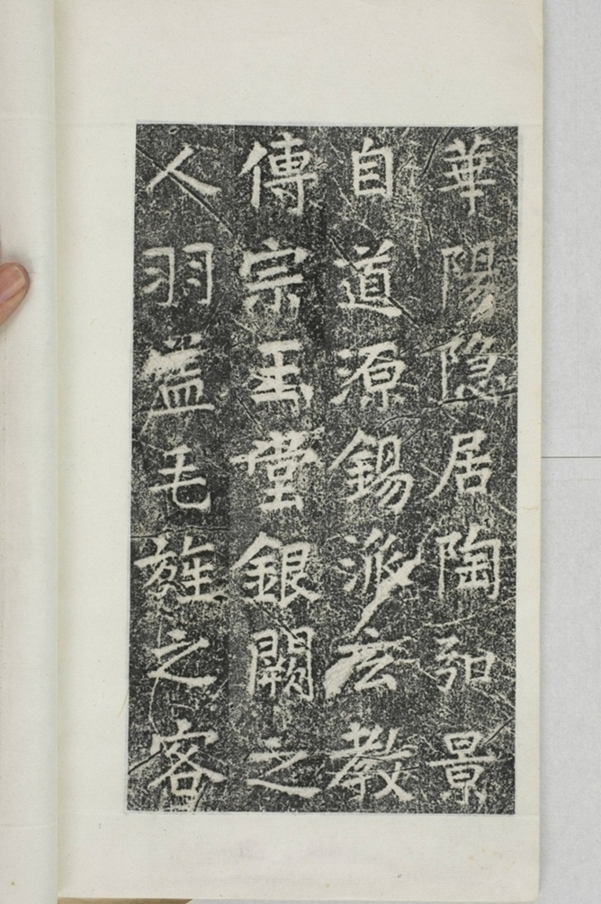 華陽隐居陶弘景
自道源錫派玄教
傳宗玉堂銀闕之
人羽盖毛旌之客